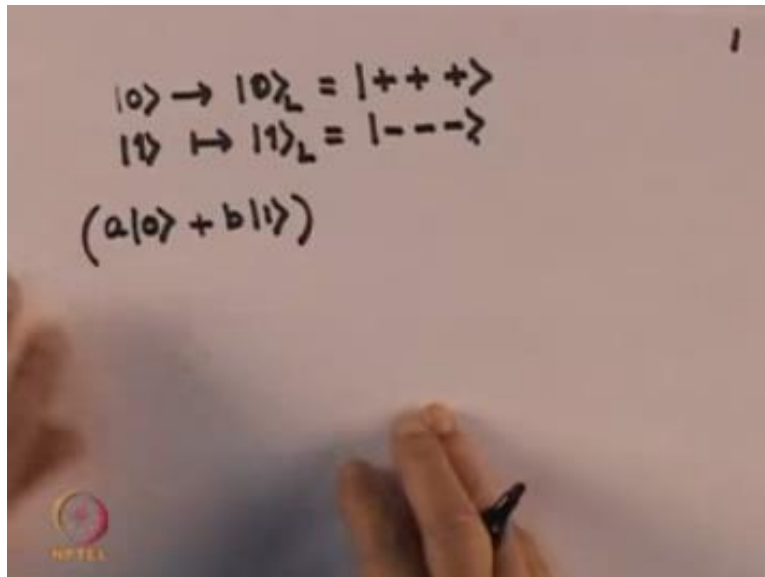 1
|0⟩ → |0⟩_L = |+ + +⟩
|1⟩ ↦ |1⟩_L = |- - -⟩
(a|0⟩ + b|1⟩)
NPTEL